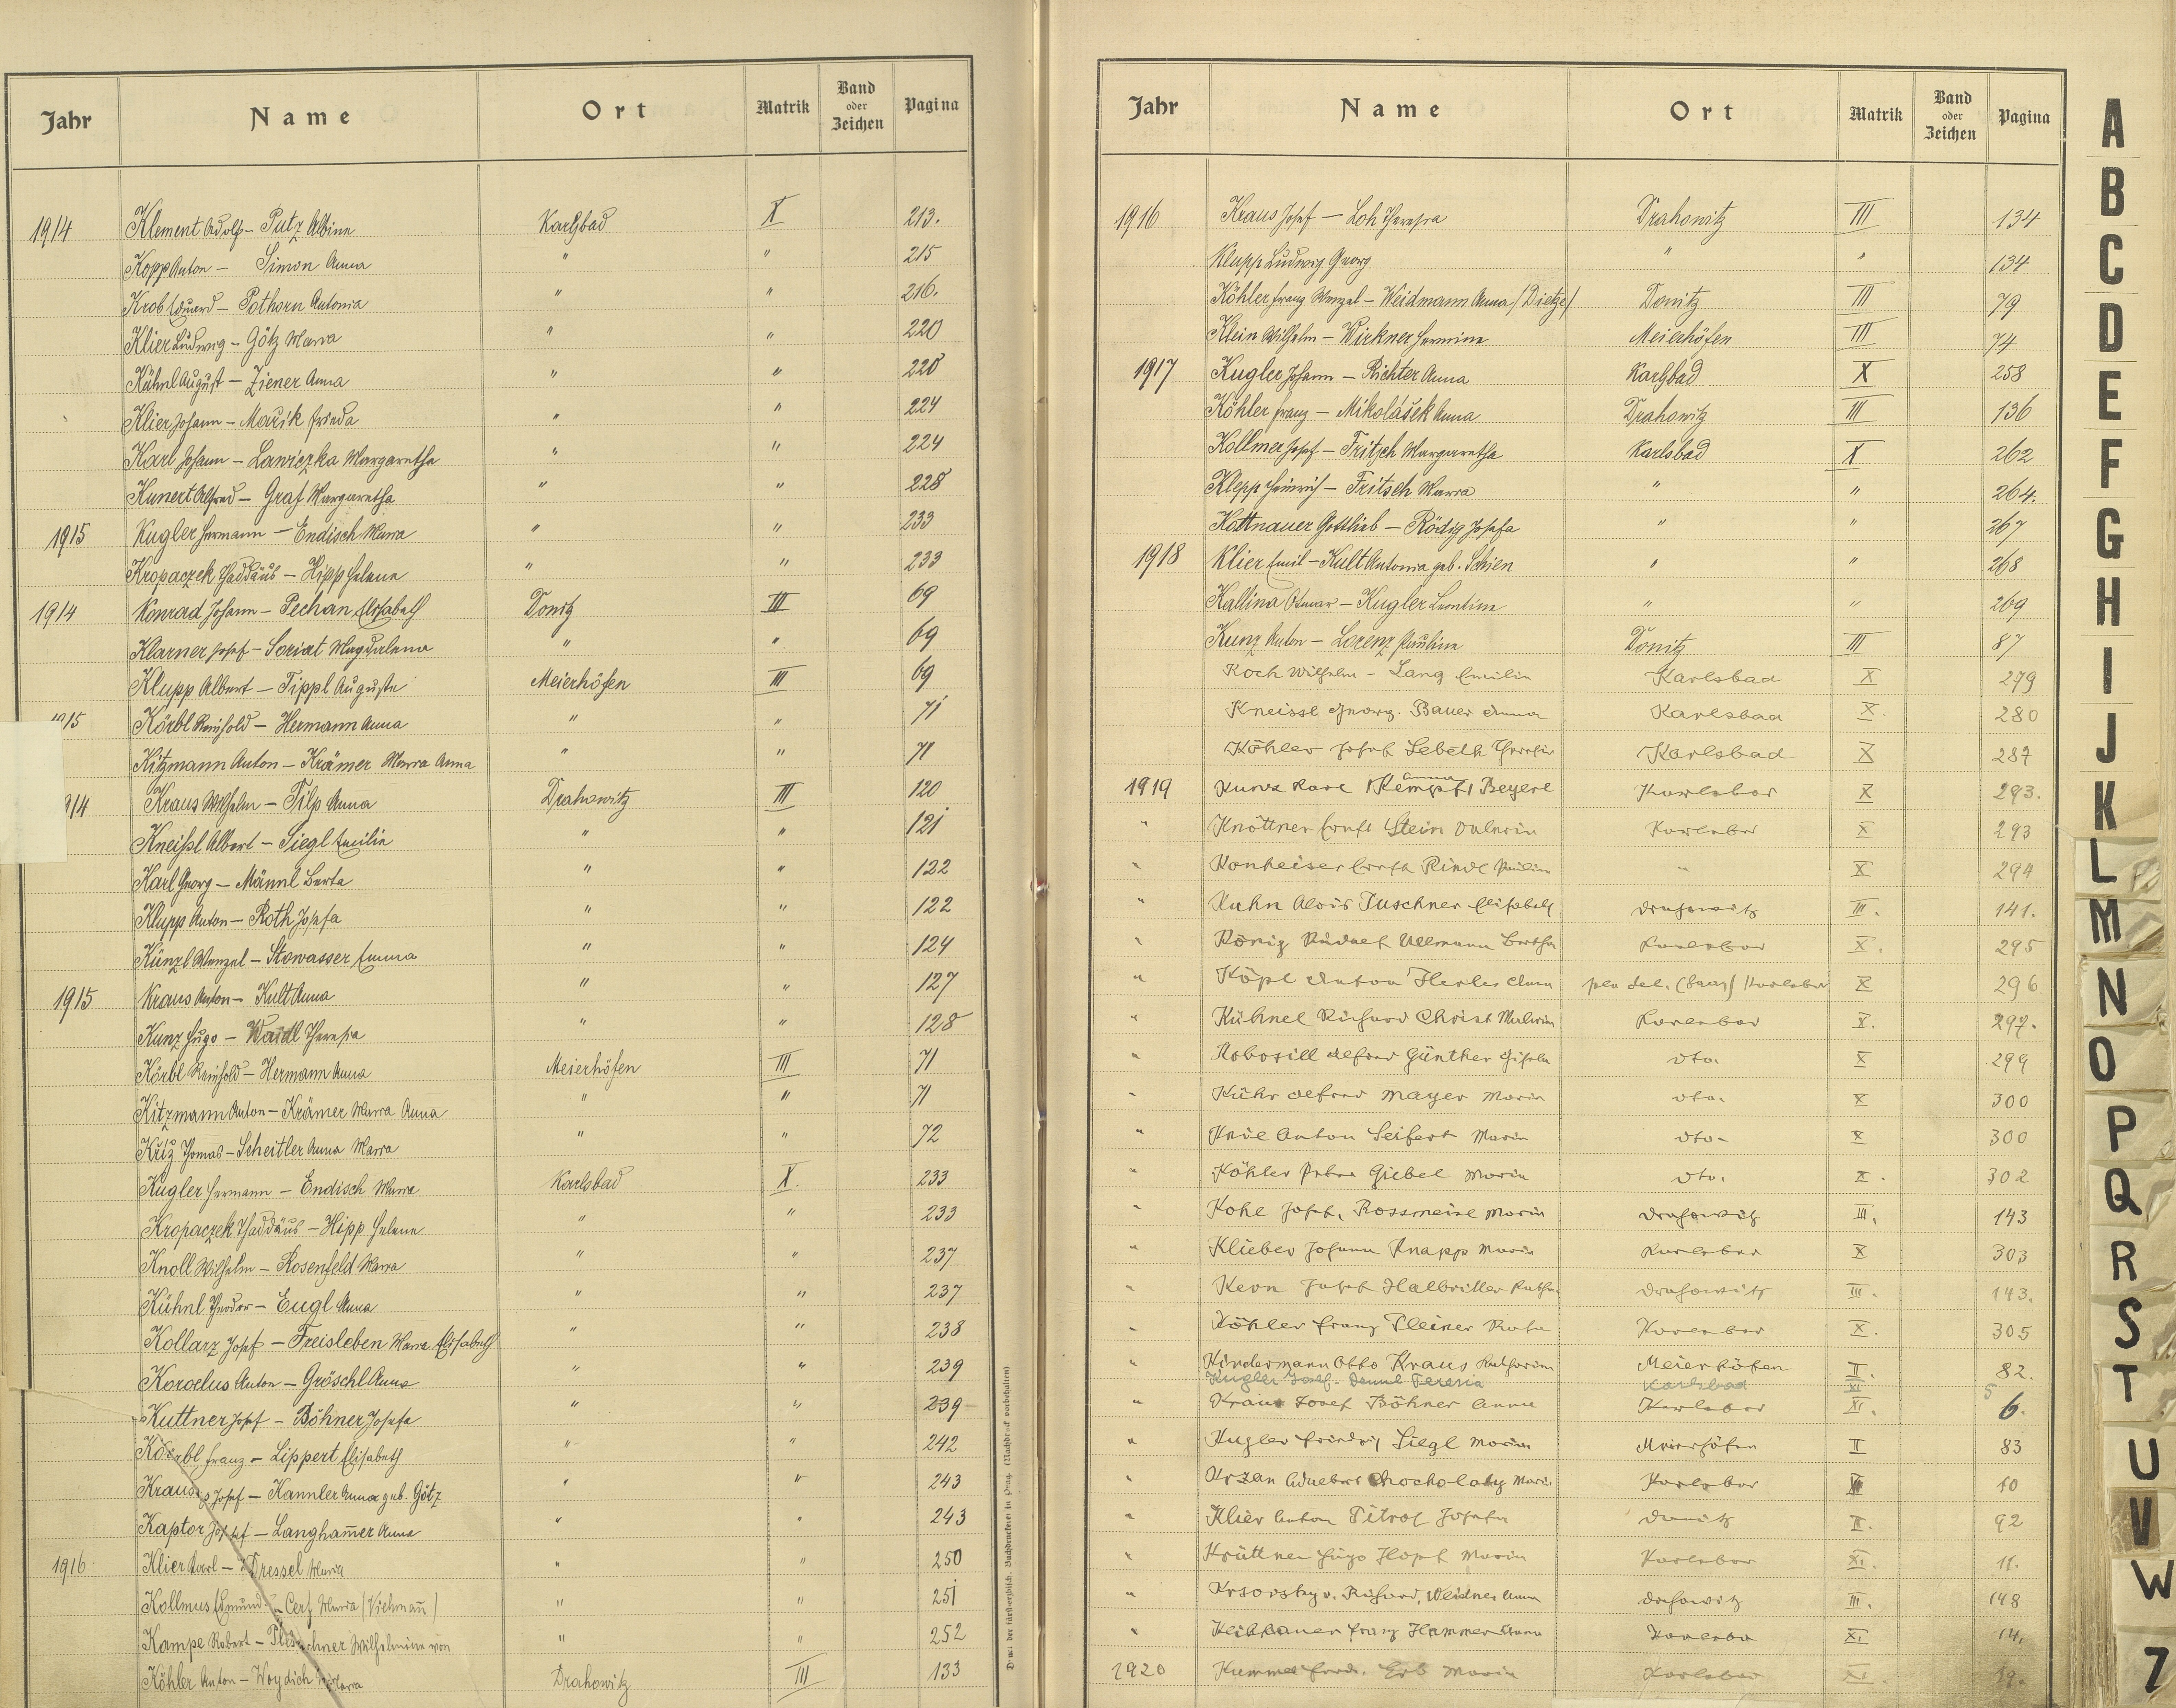 Jahr Name Ort Matrik Band oder Zeichen Pagina
1914 Klement Adolf – Putz Albine Karlsbad X 213.
Kopp Anton – Simon Anna " " 215
Krob Eduard – Pothorn Antonia " " 216.
Klier Ludwig – Götz Maria " " 220
Kühnl August – Ziener Anna " " 220
Klier Johann – Mařik Frieda " " 224
Karl Johann – Lawiczka Margaretha " " 224
Kunert Alfred – Graf Margaretha " " 228
1915 Kugler Hermann – Endisch Maria " " 233
Kropaczek Thaddäus – Hipp Helene " " 233
1914 Konrad Johann – Pechan Elisabeth Donitz III 69
Klarner Josef – Soriat Magdalena " " 69
Klupp Albert – Tippl Auguste Meierhöfen III 69
1915 Körbl Reinhold – Hermann Anna " " 71
Kitzmann Anton – Krämer Maria Anna " " 71
Kraus Wilhelm – Filp Anna Drahowitz III 120
Kneißl Albert – Siegl Emilie " " 121
Karl Georg – Männl Berta " " 122
Klupp Anton – Roth Josefa " " 122
Künzl Wenzel – Stowasser Emma " " 124
1915 Kraus Anton – Kult Anna " " 127
Kunz Hugo – Waidl Theresia " " 128
Körbl Reinhold – Hermann Anna Meierhöfen III 71
Kitzmann Anton – Krämer Maria Anna " " 71
Kříž Thomas – Scheitler Anna Maria " " 72
Kugler Hermann – Endisch Maria Karlsbad X. 233
Kropaczek Thaddäus – Hipp Helene " " 233
Knoll Wilhelm – Rosenfeld Maria " " 237
Kühnl Theodor – Eugl Anna " " 237
Kollarz Josef – Freisleben Maria Elisabeth " " 238
Korcelus Anton – Gröschl Anna " " 239
Kuttner Josef – Böhner Josefa " " 239
Körbl Franz – Lippert Elisabeth " " 242
Kraus Josef – Kannler Anna geb. Götz " " 243
Kaptor Josef – Langham̅er Anna " " 243
1916 Klier Karl – Dressel Maria " " 250
Kollmus Edmund – Cerf Maria (Viehman̅) " " 251
Kampe Robert – Wilhelmine von " " 252
Köhler Anton – Woydich Maria Drahowitz III 133
Jahr Name Ort Matrik Band oder Zeichen Pagina
1916 Kraus Josef – Loh Theresia Drahowitz III 134
Klupp Ludwig Georg " " 134
Köhler Franz Wenzel – Weidmann Anna /Dietze/ Donitz III 79
Klein Wilhelm – Wirkner Hermine Meierhöfen III. 74
1917 Kugler Johann – Richter Anna Karlsbad X 258
Köhler Franz – Mikolášek Anna Drahowitz III 136
Kollmer Josef – Fritsch Margaretha Karlsbad X 262
Klepp Heinrich – Fritsch Maria " " 264.
Kottnauer Gottlieb – Rödig Josefa " " 267
1918 Klier Emil – Kult Antonia geb. Schien " " 268
Kallina Otmar – Kugler Leontine " " 269
Kunz Anton – Lorenz Pauline Donitz III 87
Koch Wilhelm – Lang Emilie Karlsbad X 279
Kneissl Georg. Bauer Anna Karlsbad X. 280
Köhler Josef Lebeth Theresia Karlsbad X 287
1919 Kunz Karl (Kempf) Beyerl Anna Karlsbad X 293.
" Knöttner Ernst Stein Valerie Karlsbad X 293
" Konheiser Ernst Rindl Pauline " X 294
" Kuhn Alois Tuschner Elisabeth Drahowitz III. 141.
" König Rudolf Ullmann Bertha Karlsbad X. 295
" Köpl Anton Herles Anna Karlsbad X 296
" Kühnel Richard Christ Malwine Karlsbad X. 297.
" Kobosill Alfred Günther Gisela dto. X 299
" Kühr Alfred Mayer Maria dto. X 300
" Knie Anton Seifert Maria dto. X 300
" Köhler Peter Giebel Maria dto. X. 302
" Kohl Josef, Rossmeisl Maria Drahowitz III. 143
" Klieber Johann Knapp Maria Karlsbad X 303
" Kern Josef Halbritter Kathar. Drahowitz III. 143.
" Köhler Franz Pleiner Rosa Karlsbad X. 305
" Kindermann Otto Kraus Katharina Meierhöfen II. 82.
Kugler Josef. Dennl Teresia Karlsbad XI 5
" Kraus Josef Böhner Anna Karlsbad XI. 6.
" Kugler Friedrich Siegl Maria Meierhöfen II 83
" Krzan Adalbert Chocholaty Maria Karlsbad 10
" Klier Anton Pitrof Josefa Donitz II. 92
" Krüttner Hugo Hopf Maria Karlsbad XI. 11.
" Richard, Weidner Anna Drahowitz III. 148
" Franz Hammer Anna Karlsbad XI 14.
1920 Kummer Ferd. Erb Maria Karlsbad XI. 19.
Druck der fürsterzbisch. Buchdruckerei in Prag. (Nachdruck vorbehalten)
A
B
C
D
E
F
G
H
I
J
K
L
M
N
O
P
Q
R
S
T
U
V
W
Z